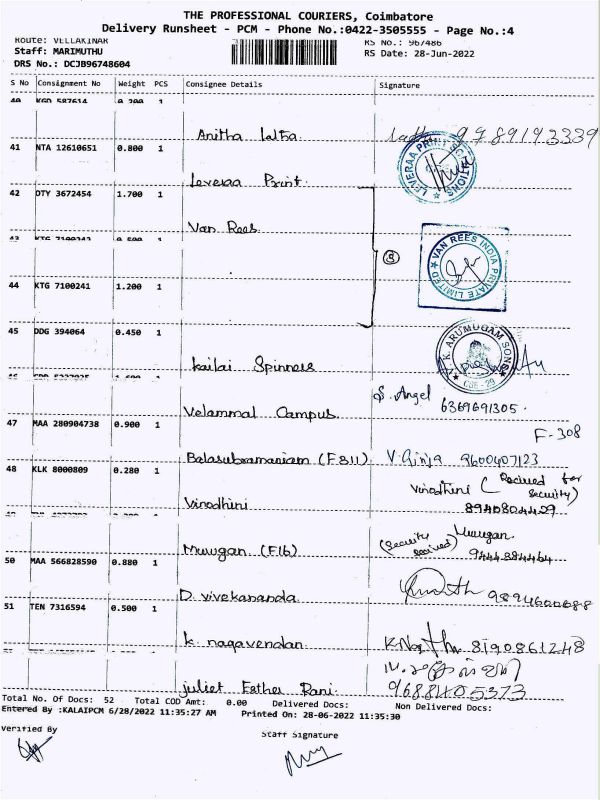 THE PROFESSIONAL COURIERS, Coimbatore
Delivery Runsheet - PCM - Phone No.:0422-3505555 - Page No.:4
Route: VELLAKINAR
RS No.: 967486
Staff: MARIMUTHU
RS Date: 28-Jun-2022
DRS No.: DCJB96748604
S No Consignment No Weight PCS Consignee Details Signature
40 KGD 587614 0.200 1
Anitha latha 9789193339
41 NTA 12610651 0.800 1
LEVERAA PRINT SOLUTIONS
Leveraa Print
42 DTY 3672454 1.700 1
Van Rees
43 KTG 7100242 0.500 1
3
VAN REES INDIA PRIVATE LIMITED
44 KTG 7100241 1.200 1
45 DDG 394064 0.450 1
K. ARUMUGAM SONS
CBE - 29
Kailai Spinners
S. Angel
6369691305.
Velammal Campus
47 MAA 280904738 0.900 1
F-308
Balasubramaniam (F311) V. Girija 9600407123
48 KLK 8000809 0.280 1
Vinodhini (Recived for security)
8940804429
Vinodhini
Murugan
(Security recived)
9444884464
Murugan (F16)
50 MAA 566828590 0.880 1
9894600688
D. vivekananda
51 TEN 7316594 0.500 1
K. nagavendan 8190861248
9688405373
juliet Esther Rani.
Total No. Of Docs: 52 Total COD Amt: 0.00 Delivered Docs: Non Delivered Docs:
Entered By :KALAIPCM 6/28/2022 11:35:27 AM Printed On: 28-06-2022 11:35:30
Verified By
Staff Signature